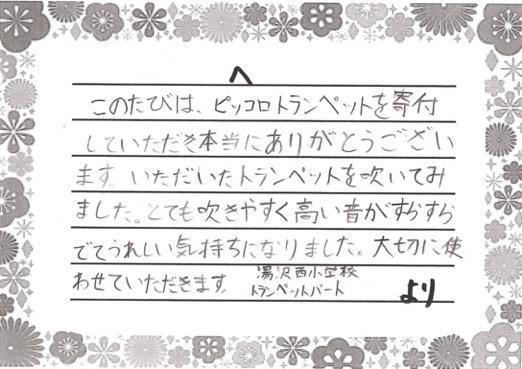 へ
このたびは、ピッコロトランペットを寄付
していただき本当にありがとうござい
ます。いただいたトランペットを吹いてみ
ました。とても吹きやすく高い音がすらすら
でてうれしい気持ちになりました。大切に使
わせていただきます。
湯沢西小学校
トランペットパート
より